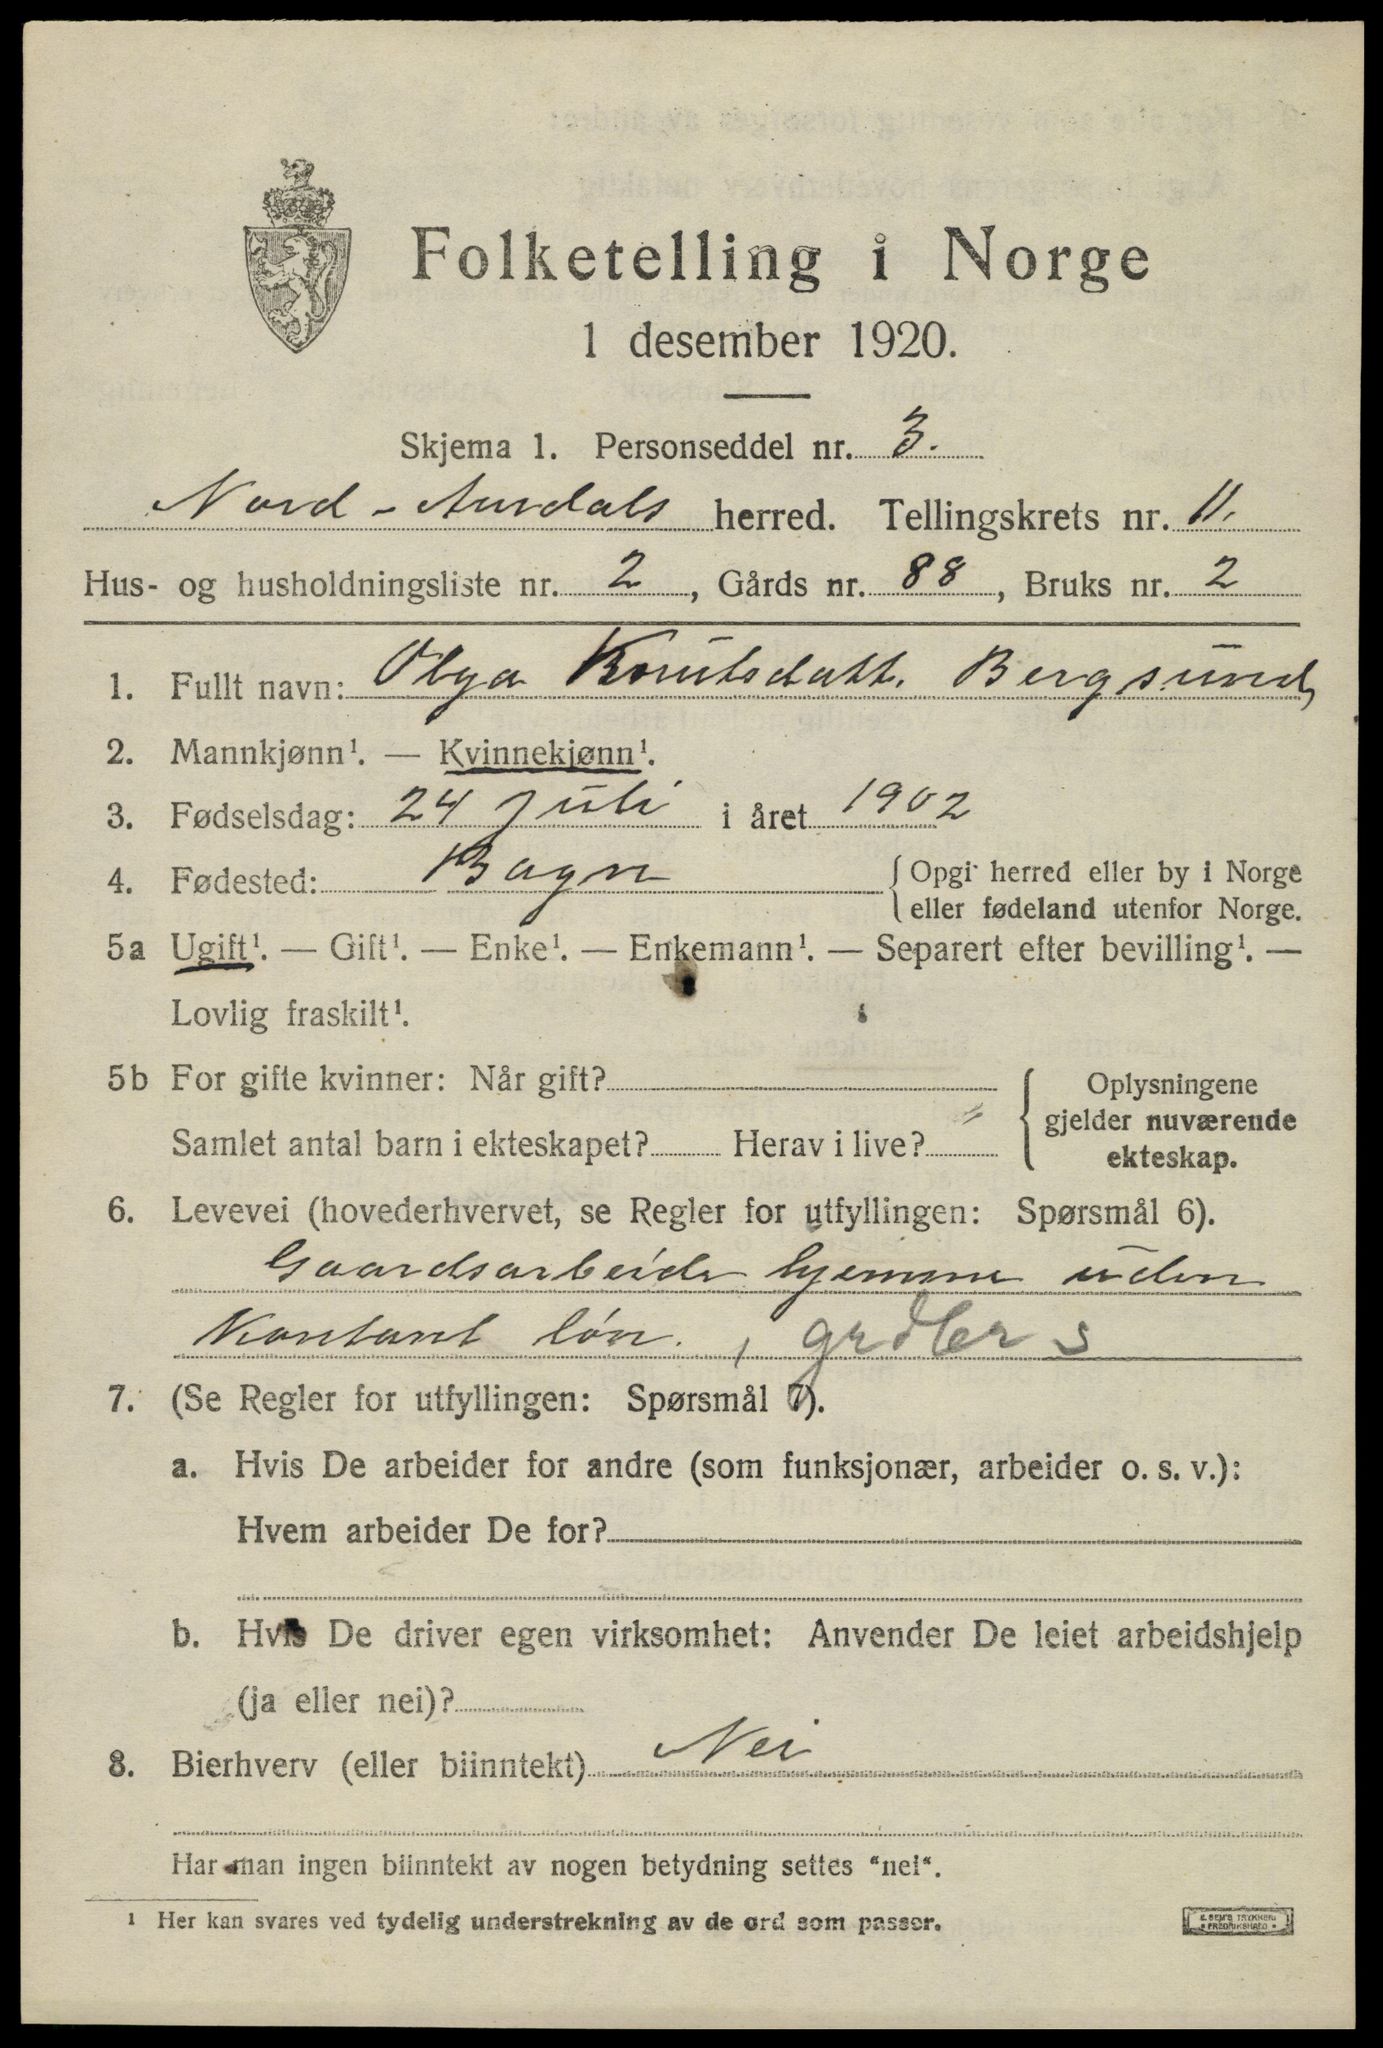 Folketelling i Norge
1 desember 1920.
Skjema 1. Personseddel nr. 3.
Nord-Aurdals herred. Tellingskrets nr. 11.
Hus- og husholdningsliste nr. 2, Gårds nr. 88, Bruks nr. 2
1. Fullt navn: Olga Knutsdatt. Bergsund,
2. Mannkjønn¹. — Kvinnekjønn¹.
3. Fødselsdag: 24 juli i året 1902
4. Fødested: Bagn { Opgi herred eller by i Norge
eller fødeland utenfor Norge.
5a Ugift¹. — Gift¹. — Enke¹. — Enkemann¹. — Separert efter bevilling¹. —
Lovlig fraskilt¹.
5b For gifte kvinner: Når gift?
Samlet antal barn i ekteskapet? Herav i live? "
{ Oplysningene
gjelder nuværende
ekteskap.
6. Levevei (hovederhvervet, se Regler for utfyllingen: Spørsmål 6).
Gaardsarbeide hjemme uden
Kontant løn. , grdbr s
7. (Se Regler for utfyllingen: Spørsmål 7).
a. Hvis De arbeider for andre (som funksjonær, arbeider o. s. v.):
Hvem arbeider De for?
b. Hvis De driver egen virksomhet: Anvender De leiet arbeidshjelp
(ja eller nei)?
8. Bierhverv (eller biinntekt) Nei
Har man ingen biinntekt av nogen betydning settes "nei".
¹ Her kan svares ved tydelig understrekning av de ord som passer.
E. SEM'S TRYKKERI
FREDRIKSHALD